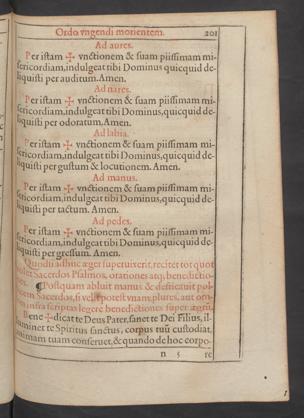 Ordo vngendi morientem. 201
Ad aures.
Per istam ✠ vnctionem & suam piissimam mi-
sericordiam, indulgeat tibi Dominus quicquid de-
liquisti per auditum. Amen.
Ad nares.
Per istam ✠ vnctionem & suam piissimam mi-
sericordiam, indulgeat tibi Dominus, quicquid de-
liquisti per odoratum, Amen.
Ad labia.
Per istam ✠ vnctionem & suam piissimam mi-
sericordiam, indulgeat tibi Dominus, quicquid de-
liquisti per gustum & locutionem. Amen.
Ad manus.
Per istam ✠ vnctionem & suam piissimam mi-
sericordiam, indulgeat tibi Dominus, quicquid de-
liquisti per tactum. Amen.
Ad pedes.
Per istam ✠ vnctionem & suam piissimam mi-
sericordiam, indulgeat tibi Dominus, quicquid de-
liquisti per gressum. Amen.
Quòd si adhuc æger superuixerit, recitet tot quot
Sacerdos Psalmos, orationes atq; benedictio-
Postquam abluit manus & desiccauit pol-
Sacerdos, si vult potest vnam, plures, aut om-
infra scriptas legere benedictiones super ægrū.
Bene ✠ dicat te Deus Pater, sanet te Dei Filius, il-
luminet te Spiritus sanctus, corpus tuū custodiat,
animam tuam conseruet, & quando de hoc corpo-
n 5 re